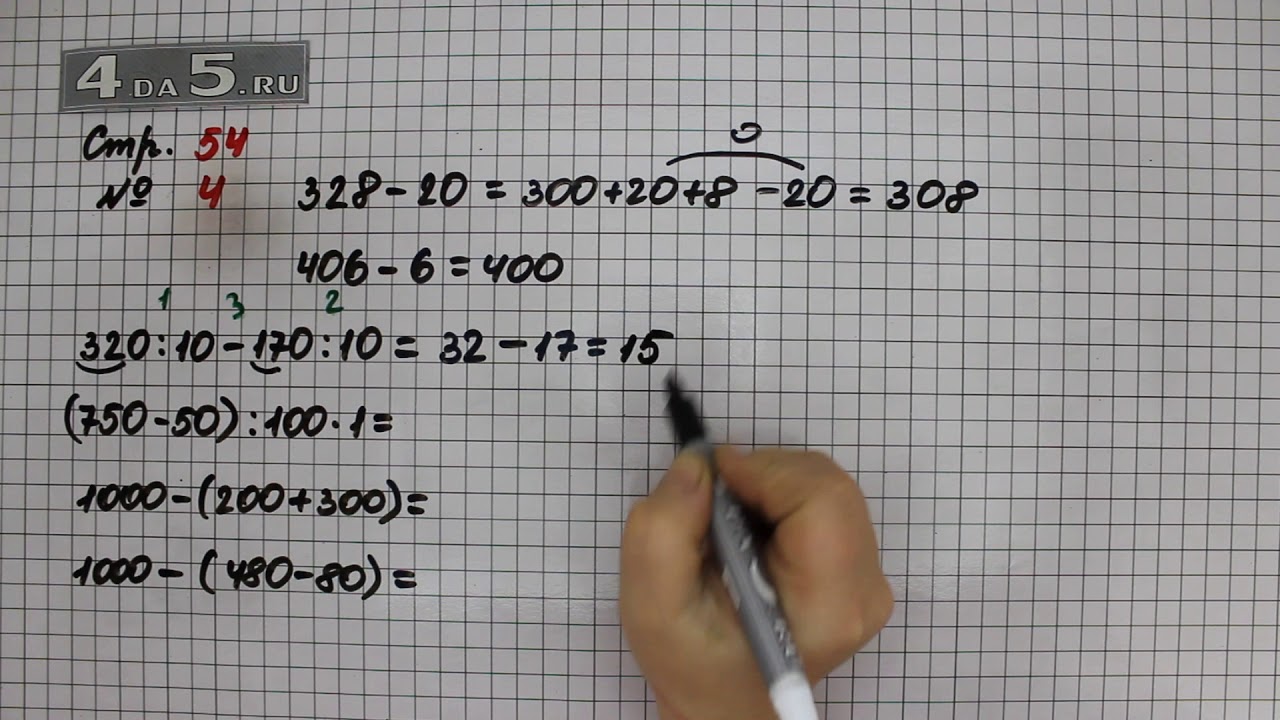 4 DA 5.RU
Стр. 54
№ 4
0
328 - 20 = 300 + 20 + 8 - 20 = 308
406 - 6 = 400
1 3 2
320 : 10 - 170 : 10 = 32 - 17 = 15
(750 - 50) : 100 · 1 =
1000 - (200 + 300) =
1000 - (480 - 80) =